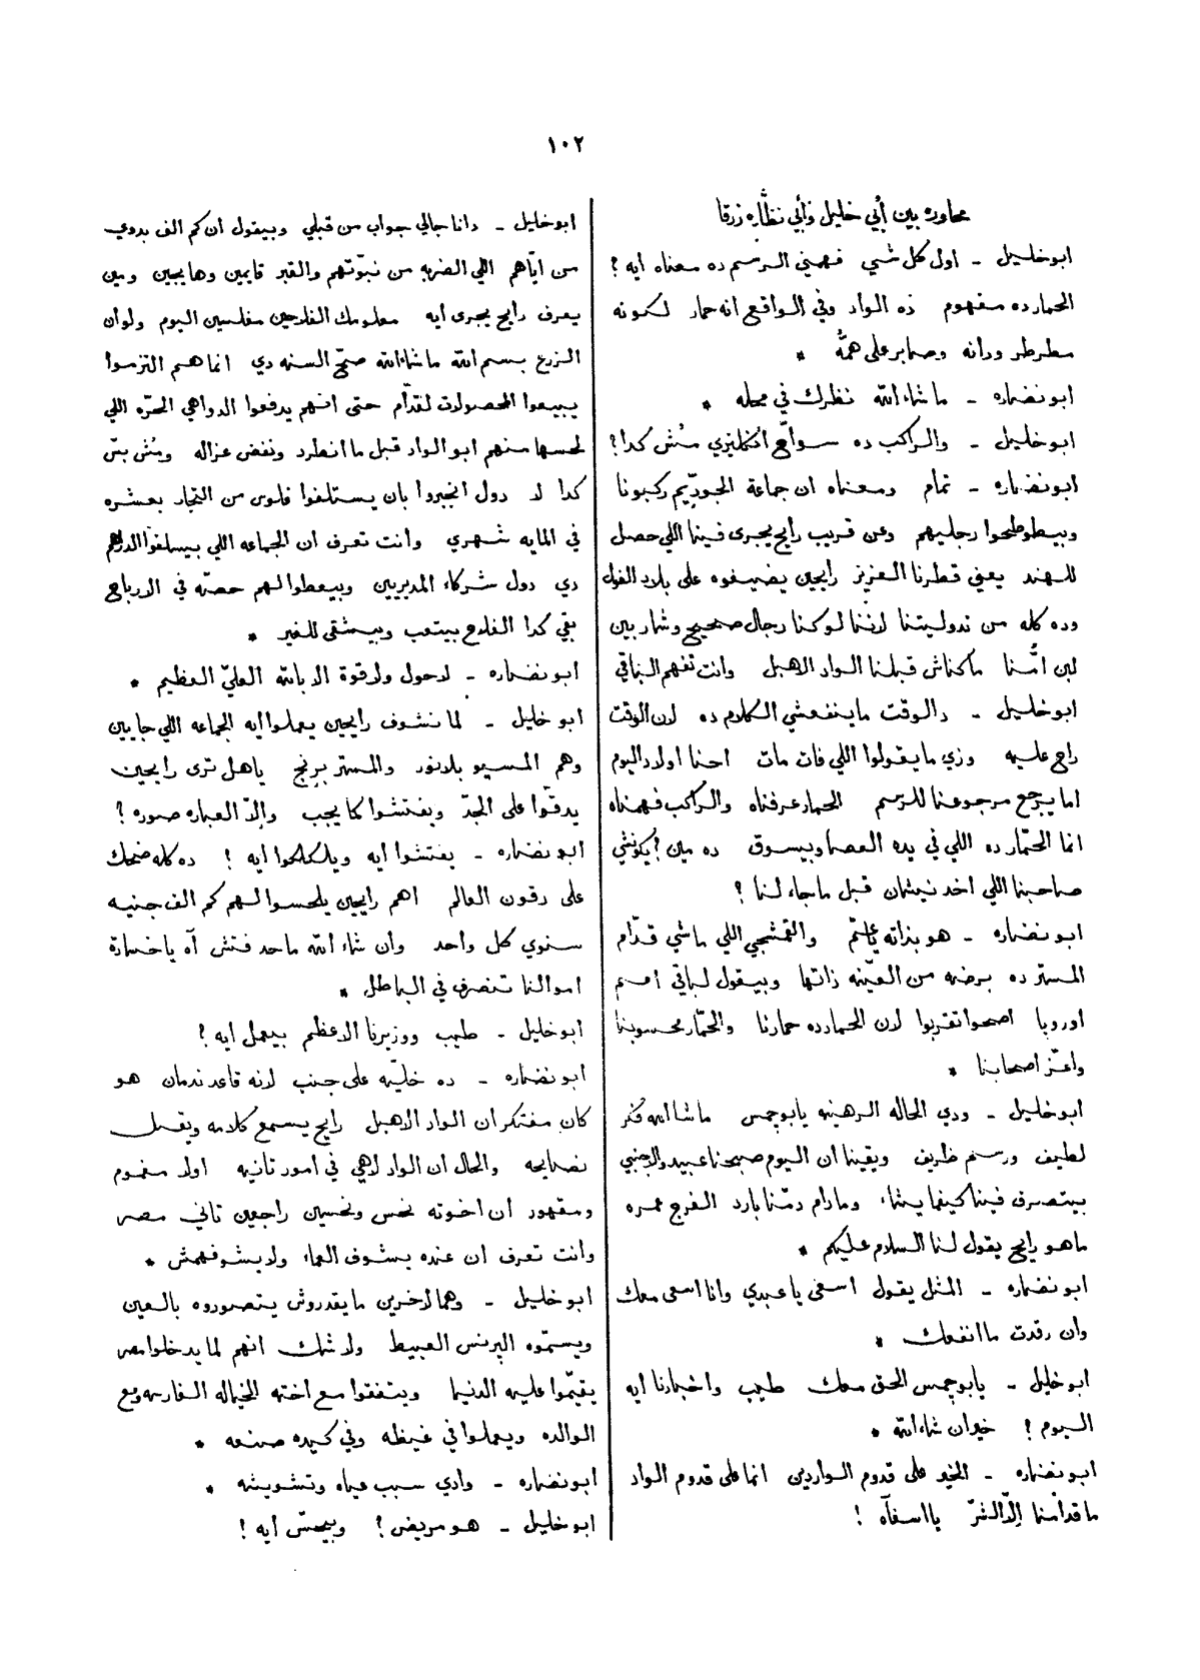 ١٠٢
محاوره بين أبي خليل وأبي نظاره زرقا
ابو خليل - اول كل شي فهمني الرسم ده معناه ايه ؟
الحمار ده مفهوم ده الواد وفي الواقع انه حمار لكونه
مطرطر ودانه وصابر على همه *
ابو نضاره - ما شاء الله نظرك في محله *
ابو خليل - والراكب ده سواح انكليزي مش كدا ؟
ابو نضاره - تمام ومعناه ان جماعة الجوديم ركبونا
وبيطوطحوا رجليهم وعن قريب رايح يجرى فينا اللي حصل
للهند يعني قطرنا العزيز رايحين يضيفوه على بلاد الغول
وده كله من ندوليتنا لاننا لو كنا رجال صحيح وشاربين
لبن امنا ما كناش قبلنا الواد الاهبل وانت تفهم الباقي
ابو خليل - دالوقت ما ينفعشي الكلام ده لان الوقت
راح عليه وزي ما يقولوا اللي فات مات احنا اولاد اليوم
اما يرجع مرجوعنا للرسم الحمار عرفناه والراكب فهمناه
انما الحمار ده اللي في يده العصا وبيسوق ده مين ؟ يكونشي
صاحبنا اللي اخد نيشان قبل ما جاء لنا ؟
ابو نضاره - هو بذاته يا عم والقمشجي اللي ماشي قدام
المستر ده برضه من العينه ذاتها وبيقول لباقي امم
اوروبا اصحوا تقربوا لان الحمار ده حمارنا والحمار محسوبنا
واعز اصحابنا *
ابو خليل - ودي الحاله الرهنيه يابو جمس ما شا الله فكر
لطيف ورسم ظريف ويقينا ان اليوم صبحنا عبيد والاجنبي
بيتصرف فينا كيفما يشاء ومادام دمنا بارد الفرج عمره
ما هو رايح يقول لنا السلام عليكم *
ابو نضاره - المثل يقول اسعى يا عبدي وانا اسعى معك
وان رقدت ما انفعك *
ابو خليل - يابو جمس الحق معك طيب واخبارنا ايه
اليوم ؟ خير ان شاء الله *
ابو نضاره - الخير على قدوم الواردين انما على قدوم الواد
ما قدامنا الا الشر يا اسفاه !
ابو خليل - دانا جالي جواب من قبلي وبيقول ان كم الف بدوي
من اياهم اللي الضربه من نبوتهم والقبر قايمين وهايجين ومين
يعرف رايح يجرى ايه معلومك الفلاحين مفلسين اليوم ولو ان
الزرع بسم الله ما شاء الله صح السنه دي انما هم التزموا
يبيعوا المحصولات لقدام حتى انهم يدفعوا الدواهي الحره اللي
لحسها منهم ابو الواد قبل ما انطرد ونفض عزاله ومش بس
كدا لا دول انجبروا بان يستلفوا فلوس من التجار بعشره
في المايه شهري وانت تعرف ان الجماعه اللي بيسلفوا الدراهم
دي دول شركاء المديريين وبيعطوا لهم حصه في الارباح
بقي كدا الفلاح بيتعب وبيشقى للغير *
ابو نضاره - لا حول ولا قوة الا بالله العلي العظيم *
ابو خليل - لما نشوف رايحين يعملوا ايه الجماعه اللي جايين
وهم المسيو بلانور والمستر برنج يا هل ترى رايحين
يدقوا على الجد ويفتشوا كما يجب والا العباره صوره ؟
ابو نضاره - يفتشوا ايه ويلكلكوا ايه ! ده كله ضحك
على دقون العالم اهم رايحين يلحسوا لهم كم الف جنيه
سنوي كل واحد وان شاء الله ما حد فتش آه يا خسارة
اموالنا تنصرف في الباطل *
ابو خليل - طيب ووزيرنا الاعظم بيعمل ايه ؟
ابو نضاره - ده خليه على جنب لانه قاعد ندمان هو
كان مفتكر ان الواد الاهبل رايح يسمع كلامه ويقبل
نصايحه والحال ان الواد لاهي في امور تانيه اولا مغموم
ومقهور ان اخوته نحس ونحسين راجعين تاني مصر
وانت تعرف ان عنده يشوف العماء ولا يشوفهمش *
ابو خليل - وهما لاخرين ما يقدروش يتصوروه بالعين
ويسموه البرنس العبيط ولا شك انهم لما يدخلوا مصر
يقيموا عليه الدنيا ويتفقوا مع اخته الخياله الفارسه ومع
الوالده ويعملوا في غيظه وفي كيده صنعه *
ابو نضاره - وادي سبب عياه وتشويشه *
ابو خليل - هو مريض ؟ وبيحس ايه !